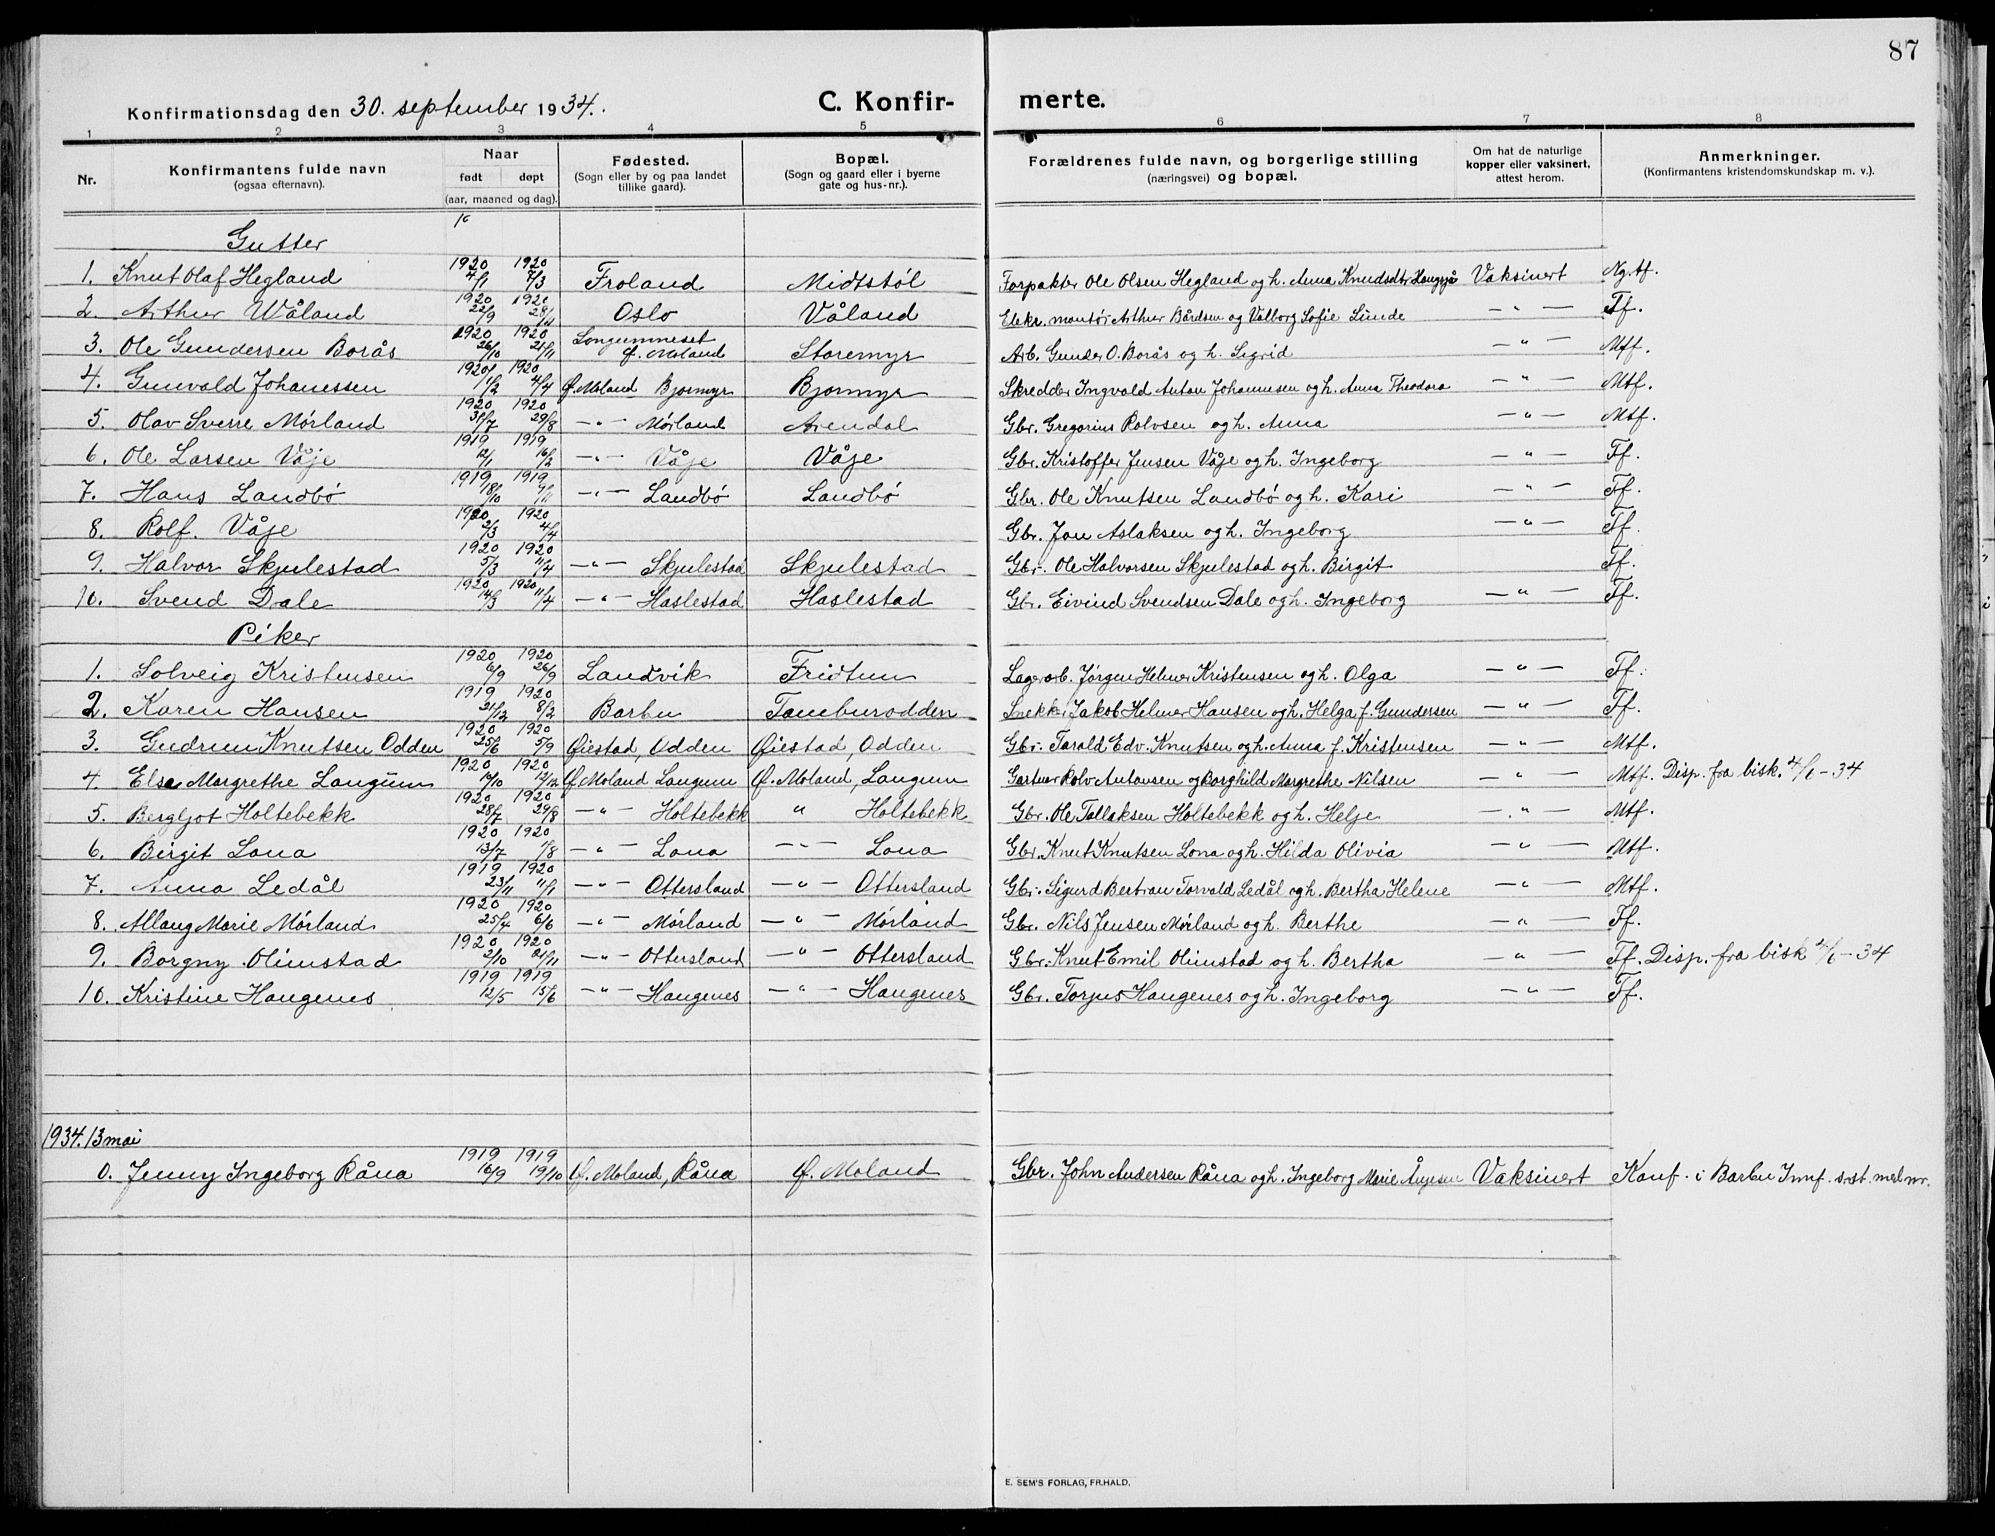 87
Konfirmationsdag den 30. september 1934. C. Konfir- merte.
1 2 3 4 5 6 7 8
Nr. Konfirmantens fulde navn (ogsaa efternavn). Naar født døpt (aar, maaned og dag). Fødested. (Sogn eller by og paa landet tillike gaard). Bopæl. (Sogn og gaard eller i byerne gate og hus-nr.). Forældrenes fulde navn, og borgerlige stilling (næringsvei) og bopæl. Om hat de naturlige kopper eller vaksinert, attest herom. Anmerkninger. (Konfirmantens kristendomskundskap m. v.).
Gutter
1. Knut Olaf Hegland 1920 4/1 1920 7/3 Froland Midtstøl Forpakter Ole Olsen Hegland og h. Anna Knudsdtr Vaksinert Ng. tf.
2. Arthur Wåland 1920 22/9 1920 Oslo Våland Elekr. montør Arthur Bårdsen og Valborg Sofie Lunde - " - Tf.
3. Ole Gundersen Borås 1920 26/10 1920 21/11 Longumneset Ø. Moland Storemyr Arb. Gunder O. Borås og h. Sigrid - " - Mtf.
4. Gunvald Johanessen 1920 1/2 1920 4/4 Ø. Moland Bjormyr Bjormyr Skredder Ingvald Anton Johannesen og h. Anna Theodora - " - Mtf.
5. Olav Sverre Mørland 1920 31/7 1920 29/8 - " - Mørland Arendal Gbr. Gregorius Rolvsen og h. Anna - " - Mtf.
6. Ole Larsen Våje 1919 12/1 1919 16/2 - " - Våje Våje Gbr. Kristoffer Jensen Våje og h. Ingeborg - " - Tf.
7. Hans Landbø 1919 18/10 1919 9/11 - " - Landbø Landbø Gbr. Ole Knutsen Landbø og h. Kari - " - Tf.
8. Rolf Våje 1920 2/3 1920 4/4 Gbr. Jon Aslaksen og h. Ingeborg - " - Tf.
9. Halvor Skjulestad 1920 5/3 1920 11/4 - " - Skjulestad Skjulestad Gbr. Ole Halvorsen Skjulestad og h. Birgit Tf.
10. Svend Dale 1920 14/3 1920 11/4 - " - Haslestad Haslestad Gbr. Eivind Svendsen Dale og h. Ingeborg - " - Tf.
Piker
1. Solveig Kristensen 1920 6/9 1920 26/9 Landvik Fridtun Lagerarb. Jørgen Helmer Kristensen og h. Olga - " - Tf.
2. Karen Hansen 1919 21/12 1920 8/2 Barbu Tamburodden Snekk. Jakob Helmer Hansen og h. Helga f. Gundersen - " - Tf.
3. Gudrun Knutsen Odden 1920 25/6 1920 5/9 Øiestad, Odden Øiestad, Odden Gbr. Torald Edv. Knutsen og h. Anna f. Kristensen - " - Mtf.
4. Else Margrethe Langum 1920 14/10 1920 12/12 Ø. Moland Langum Ø. Moland, Langum Gartner Rolv Antonsen og Borghild Margrethe Nilsen - " - Mtf. Disp. fra bisk. 4/6-34
5. Bergljot Holtebekk 1920 28/7 1920 29/8 - " - Holtebekk " Holtebekk Gbr. Ole Tallaksen Holtebekk og h. Helje - " - Mtf.
6. Birgit Lona 1920 13/7 1920 1/8 - " - Lona - " - Lona Gbr. Knut Knutsen Lona og h. Hilda Olivia - " - Mtf.
7. Anna Ledål 1919 23/11 1920 11/1 - " - Ottersland - " - Ottersland Gbr. Sigurd Bertran Torvald Ledål og h. Bertha Helene - " - Mtf.
8. Allaug Marie Mørland 1920 25/4 1920 6/6 - " - Mørland - " - Mørland Gbr. Nils Jensen Mørland og h. Berthe - " - Tf.
9. Borgny Olimstad 1920 2/10 1920 21/11 - " - Ottersland - " - Ottersland Gbr. Knut Emil Olimstad og h. Bertha - " - Tf. Disp. fra bisk 4/6-34
10. Kristine Haugenes 1919 12/5 1919 15/6 - " - Haugenes - " - Haugenes Gbr. Torjus Haugenes og h. Ingeborg - " - Tf.
1934. 13 mai
0. Jenny Ingeborg Råna 1919 16/9 1919 19/10 Ø. Moland, Råna Ø. Moland Gbr. John Andersen Råna og h. Ingeborg Marie Vaksinert Konf. i Barbu Innf. sist. med nr.
E. SEM'S FORLAG, FR.HALD.